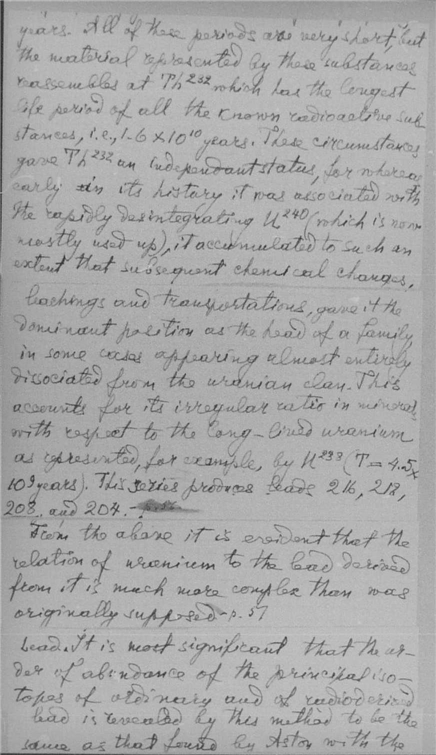 years. All of these periods are very short, but
the material represented by these substances
reassembles at Th232 which has the longest
life period of all the known radioactive sub-
stances, i.e, 1-6 × 10^10 years. These circumstances
gave Th232 an independant status, for whereas
early in its history it was associated with
the rapidly desintegrating U240 (which is now
mostly used up), it accumulated to such an
extent that subsequent chemical changes,
leachings and transportations, gave it the
dominant position as the head of a family
in some cases appearing almost entirely
dissociated from the uranian clan. This
accounts for its irregular ratio in minerals
with respect to the long-lived uranium
as represented, for example, by U233 (T = 4.5 ×
10^9 years). This series produces leads 216, 212,
208, and 204.-
From the above it is evident that the
relation of uranium to the lead derived
from it is much more complex than was
originally supposed-p. 57
Lead. It is most significant that the or-
der of abundance of the principal iso-
topes of ordinary and of radioderived
lead is revealed by this method to be the
same as that found by Aston with the